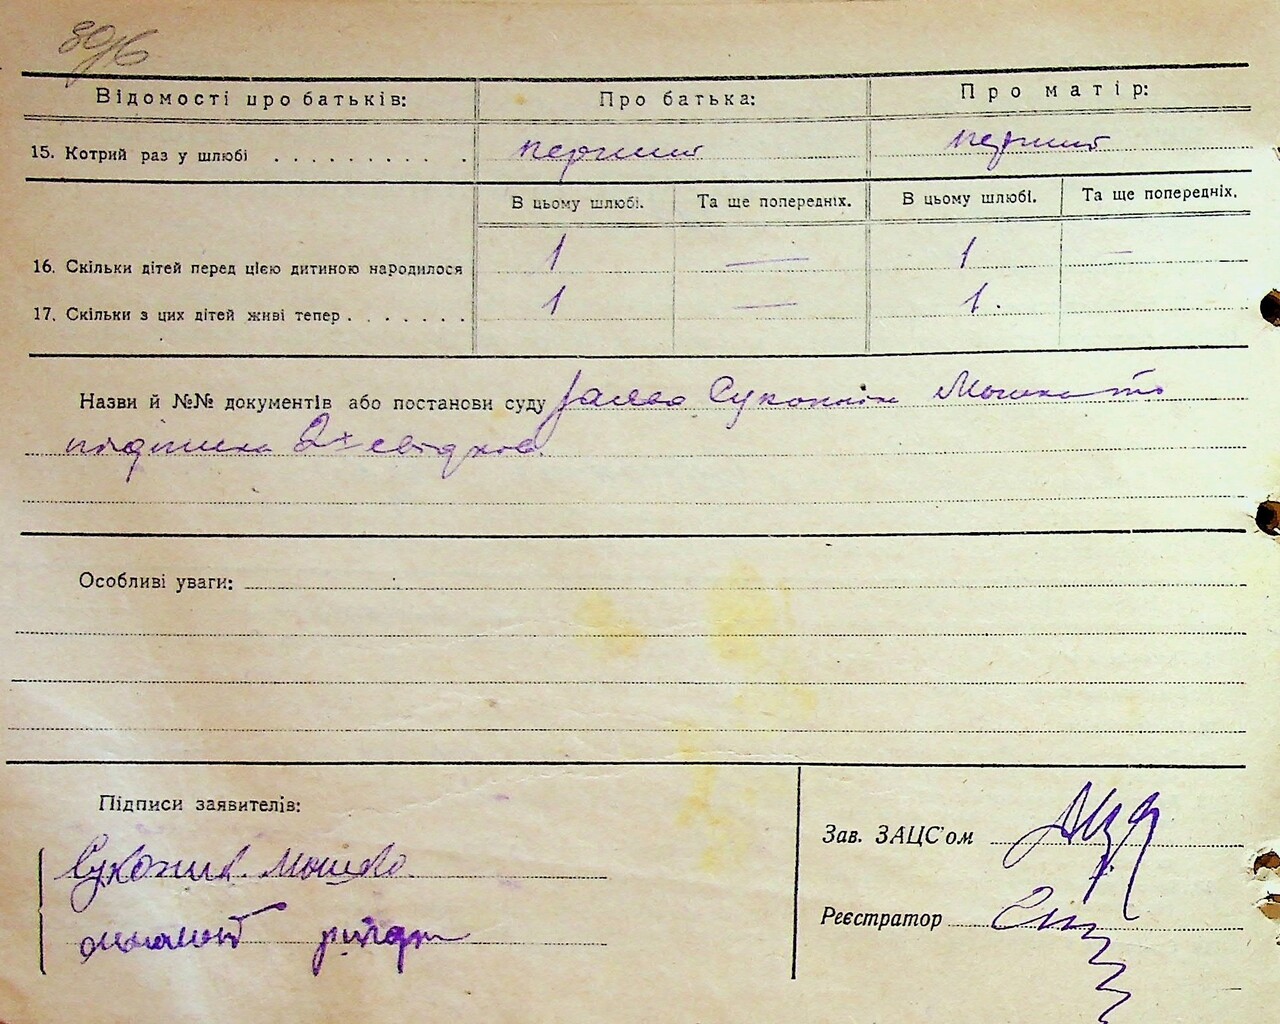 80/6
Відомості про батьків: Про батька: Про матір:
15. Котрий раз у шлюбі . . . . . . . . . . перший перший
В цьому шлюбі. Та ще попередніх. В цьому шлюбі. Та ще попередніх.
16. Скільки дітей перед цією дитиною народилося 1 — 1 —
17. Скільки з цих дітей живі тепер . . . . . . . 1 — 1.
Назви й №№ документів або постанови суду Мошка та
підписка 2х свідків.
Особливі уваги:
Підписи заявителів:
Зав. ЗАЦС'ом
Мошко
Реєстратор